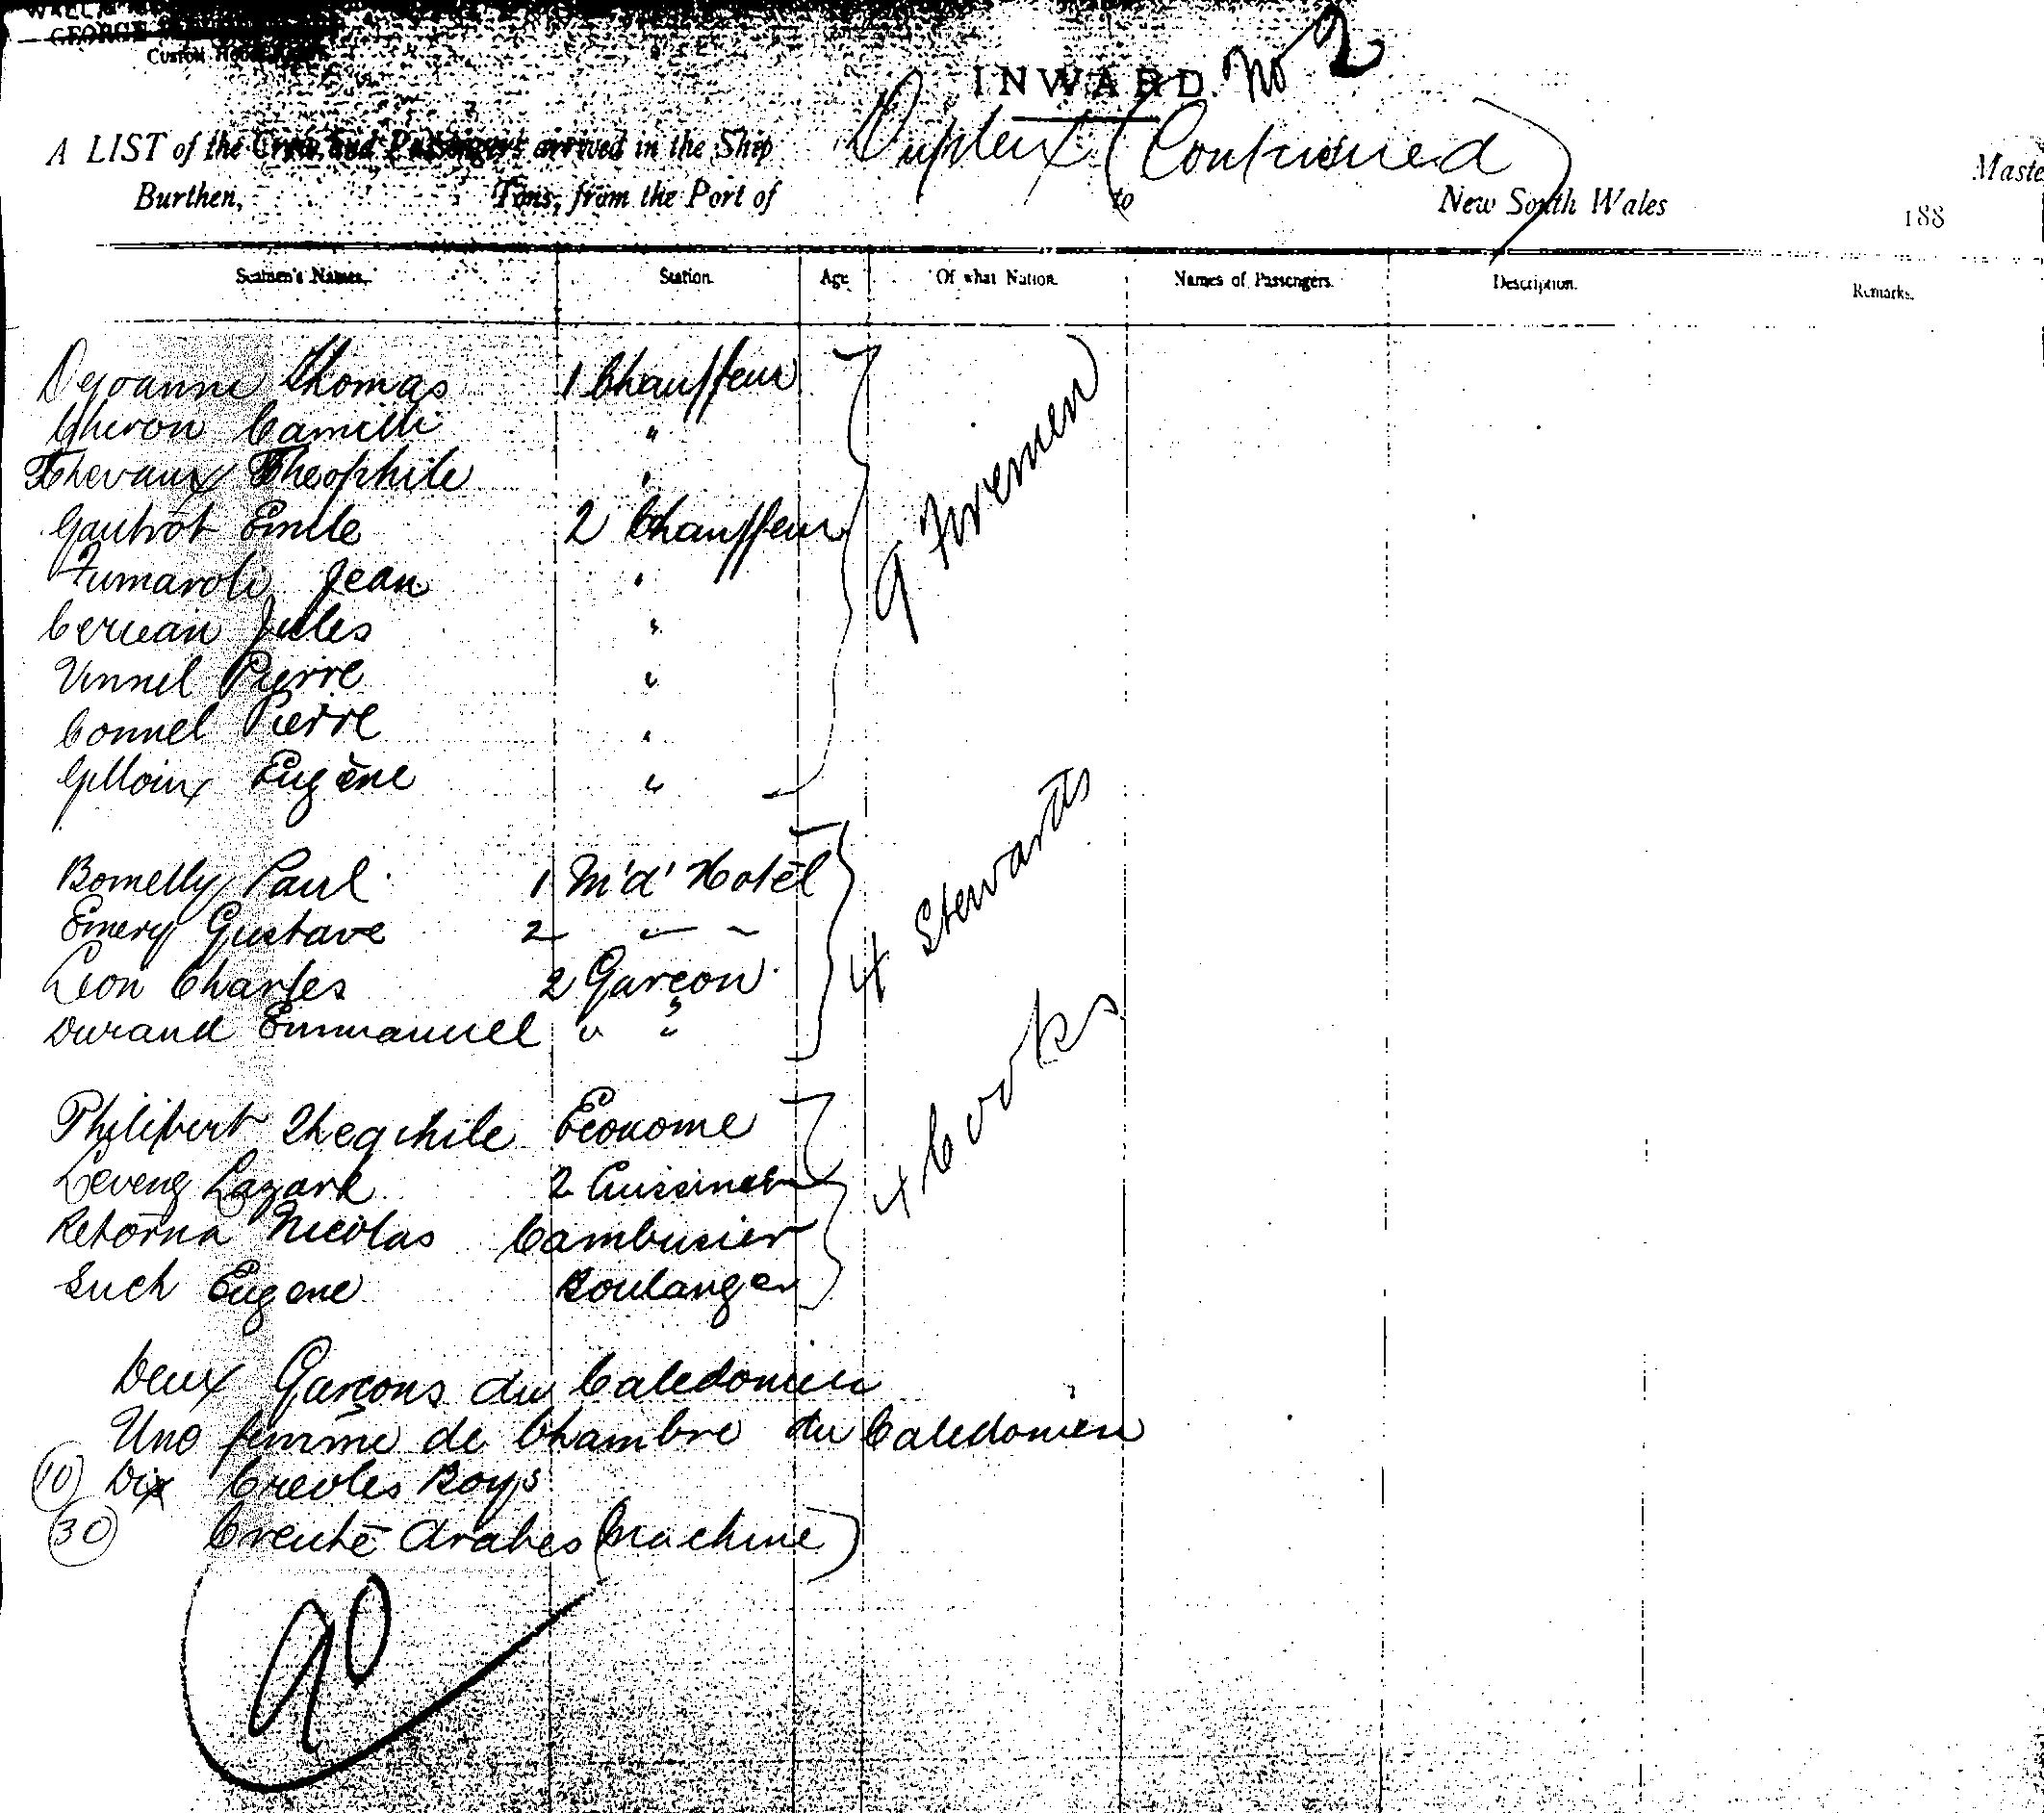 GEORGE
Custom House
INWARD. No 2
A LIST of the Crew and Passengers arrived in the Ship Dupleix (Continued) Master
Burthen, Tons, from the Port of to New South Wales 188
Seamen's Names. Station. Age. Of what Nation. Names of Passengers. Description. Remarks.
Dejoanni Thomas 1 Chauffeur
Camille "
Thevaux Theophile "
Gautrot Emile 2 Chauffeur
9 Firemen
Fumaroli Jean "
Jules "
Vinnel Pierre "
Connel Pierre "
Eugène "
Bomelly Paul 1 M'd' Hotel
Emery Gustave 2 " "
4 Stewards
Leon Charles 2 Garcon
Durand Emmanuel " "
Philibert Econome
Lazare 2 Cuisinier
4 Cooks
Retorna Nicolas Cambusier
Such Eugene Boulanger
Deux Garçons du Caledonien
Une femme de Chambre du Caledonien
(10) Dix Creoles Boys
(30) Arabes (Machine)
90